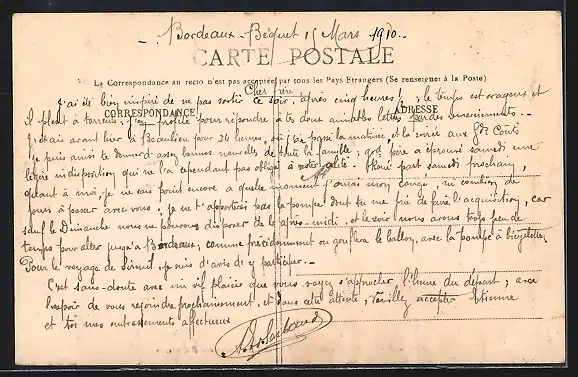 Bordeaux-Bèguet 15 Mars 1910.
CARTE POSTALE
La Correspondance au recto n'est pas acceptée par tous les Pays Etrangers (Se renseigner à la Poste)
Cher frère,
CORRESPONDANCE
ADRESSE
J'ai été bien inspiré de ne pas sortir ce soir, après cinq heures! le temps est orageux et
il pleut à torrents; j'en profite pour répondre à tes deux aimables lettres
J'étais avant hier à Beaulieu pour 24 heures, où j'ai passé la matinée, et la soirée aux
Je puis aussi te donner d'assez bonnes nouvelles de toute la famille; père a éprouvé samedi une
légère indisposition qui ne l'a cependant pas obligé à rester alité. René part samedi prochain,
quant à moi, je ne sais point encore à quelle moment j'aurai mon congé, ni combien de
jours à passer avec vous. je ne t'apporterai pas la pompe dont tu me prie de faire l'acquisition, car
sauf le Dimanche nous ne pouvons disposer de la après-midi. et le soir nous avons trop peu de
temps pour aller jusqu'à Bordeaux, comme précédemment ou gonflera le ballon, avec la pompe à bicyclettes
Pour le voyage de je suis d'avis d'y participer.
C'est sans-doute avec un vif plaisir que vous voyez s'approcher l'heure du départ; avec
l'espoir de vous rejoindre prochainement, et dans cette attente, veuillez accepter Etienne
et toi mes embrassements affectueux